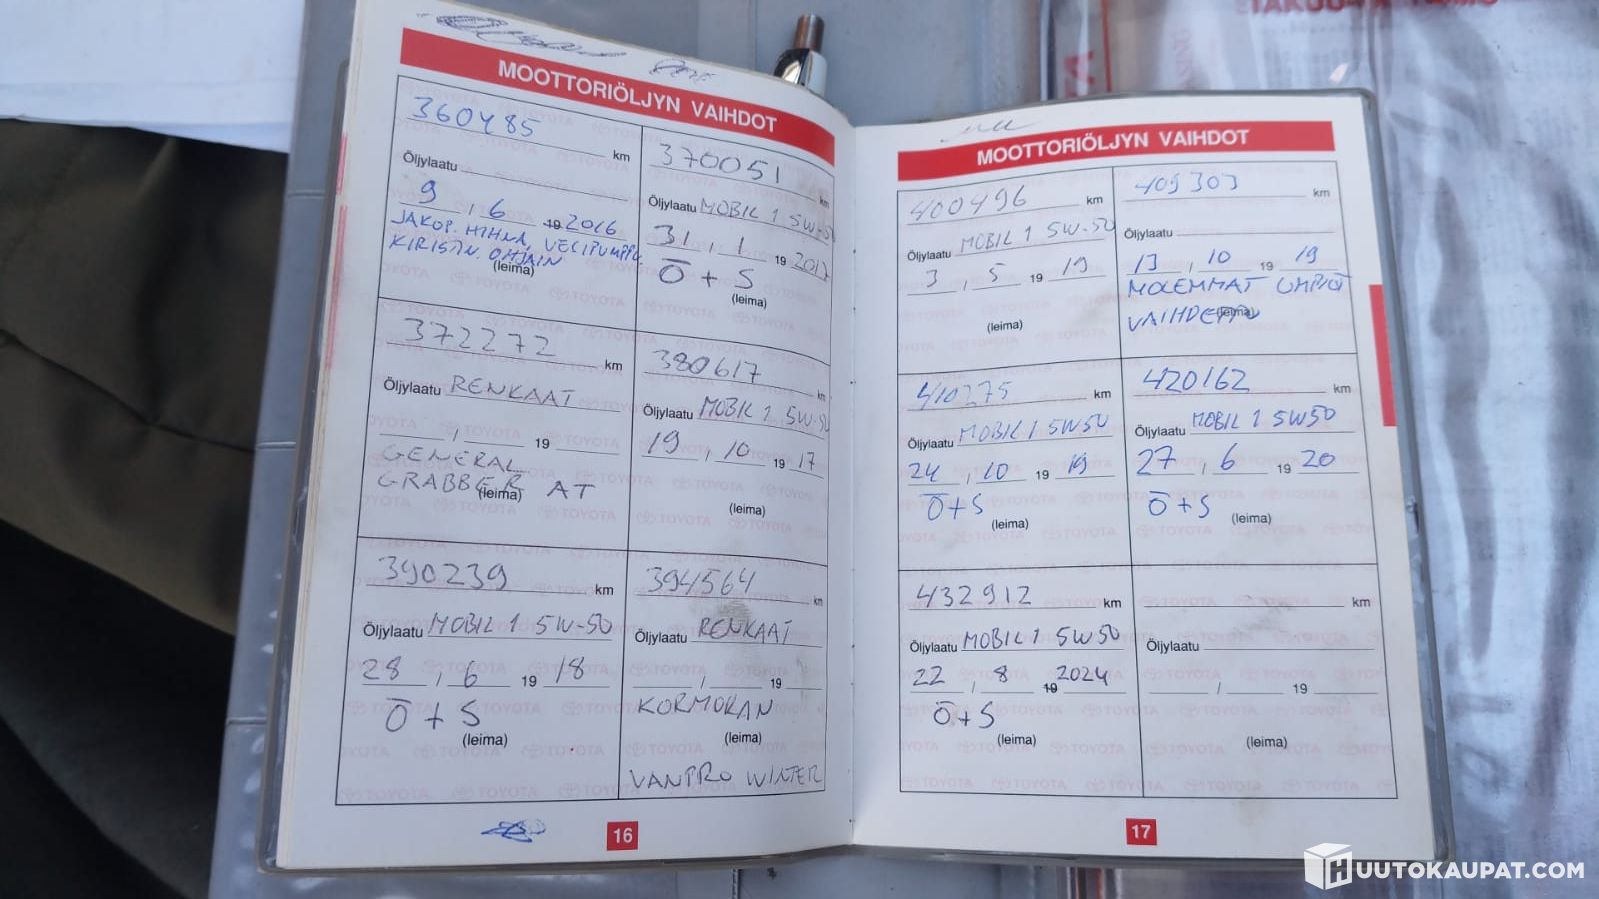 MOOTTORIÖLJYN VAIHDOT
360485 km
Öljylaatu
9 , 6 19 2016
JAKOP. HIHNA, VESIPUMPPU
KIRISTIN. OHJAIN
(leima)
370051 km
Öljylaatu MOBIL 1 5W-50
31 , 1 19 2017
Ö + S
(leima)
372272 km
Öljylaatu RENKAAT
, 19
GENERAL
GRABBER AT
(leima)
380617 km
Öljylaatu MOBIL 1 5W-50
19 , 10 19 17
(leima)
390239 km
Öljylaatu MOBIL 1 5W-50
28 , 6 19 18
Ö + S
(leima)
394564 km
Öljylaatu RENKAAT
, 19
KORMORAN
(leima)
VANPRO WINTER
16
MOOTTORIÖLJYN VAIHDOT
400496 km
Öljylaatu MOBIL 1 5W-50
3 , 5 19 19
(leima)
409303 km
Öljylaatu
13 , 10 19 19
MOLEMMAT UMPIÖT
VAIHDETTU
(leima)
410275 km
Öljylaatu MOBIL 1 5W50
24 , 10 19 19
Ö+S
(leima)
420162 km
Öljylaatu MOBIL 1 5W50
27 , 6 19 20
Ö+S
(leima)
432912 km
Öljylaatu MOBIL 1 5W50
22 , 8 19 2024
Ö+S
(leima)
km
Öljylaatu
, 19
(leima)
17
HUUTOKAUPAT.COM